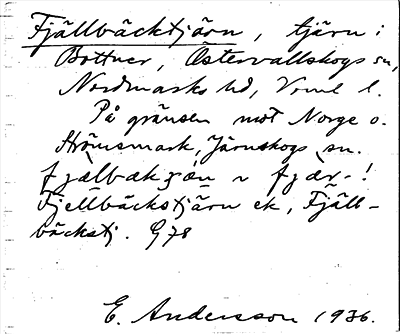 Fjällbäcktjärn, tjärn i
Bottner, Östervallskogs sn,
Nordmarks hd, Vrml l.
På gränsen mot Norge o.
Strömsmark, Järnskogs sn.
fjælbæk
Fjellbäckstjärn ek, Fjäll-
bäckstj. G78
E. Andersson 1936.